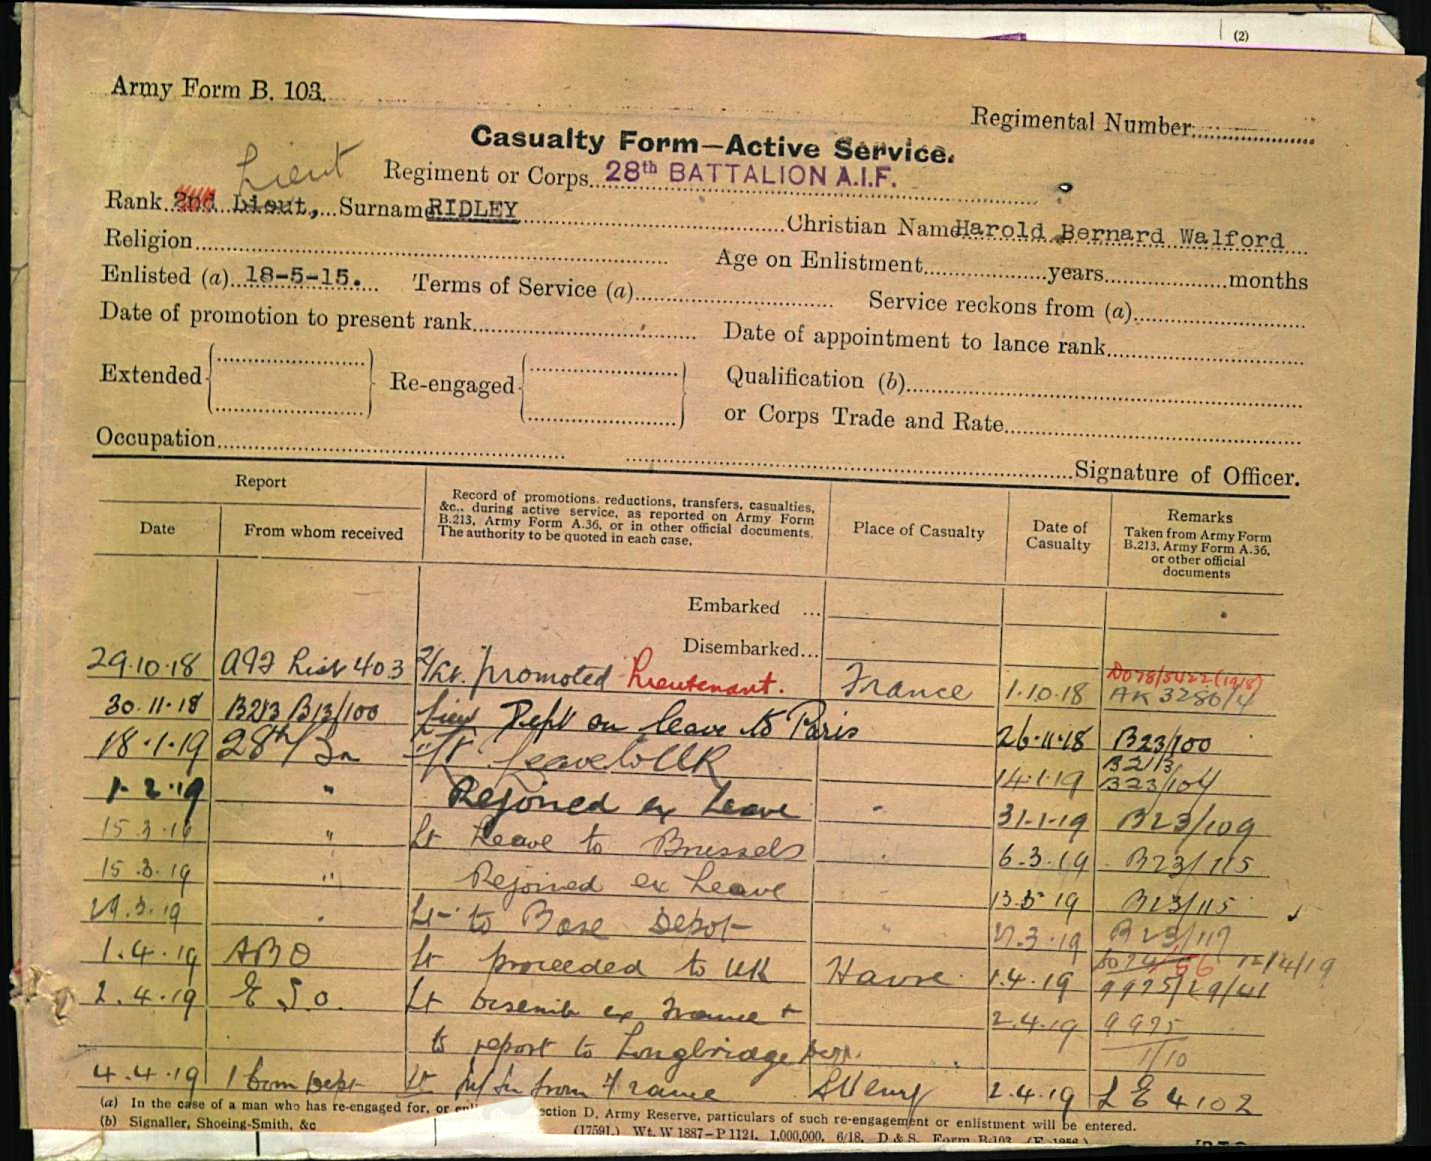 (2)
Army Form B. 103.
Regimental Number
Casualty Form—Active Service.
Lieut
Regiment or Corps 28th BATTALION A.I.F.
Rank 2nd Lieut, Surname RIDLEY Christian Name Harold Bernard Walford
Religion Age on Enlistment years months
Enlisted (a) 18-5-15. Terms of Service (a) Service reckons from (a)
Date of promotion to present rank Date of appointment to lance rank
Extended Re-engaged Qualification (b)
or Corps Trade and Rate
Occupation Signature of Officer.
Report
Date
From whom received
Record of promotions, reductions, transfers, casualties, &c., during active service, as reported on Army Form B.213, Army Form A.36, or in other official documents. The authority to be quoted in each case.
Place of Casualty
Date of Casualty
Remarks
Taken from Army Form B.213, Army Form A.36, or other official documents
Embarked ...
Disembarked...
29.10.18 AIF List 403 2/Lt. promoted Lieutenant. France 1.10.18 AK 3280/4
30.11.18 B213 B13/100 Lieut Dept on leave to Paris 26.11.18 B23/100
18.1.19 28th Bn Lt Leave to UK 14.1.19 B213 B23/104
1.2.19 " Rejoined ex Leave " 31.1.19 B23/109
15.3.19 " Lt Leave to Brussels " 6.3.19 B23/115
15.3.19 " Rejoined ex Leave 13.3.19 B23/115
29.3.19 " Lt to Base Depot " 27.3.19 B23/117
1.4.19 ABO Lt proceeded to UK Havre 1.4.19 12/4/19
9975/29/41
2.4.19 E S O. Lt ex France + 2.4.19 9975
to report to Longbridge 1/10
4.4.19 1 Com Dept Lt M/In from France 2.4.19 L E 4102
(a) In the case of a man who has re-engaged for, or Section D, Army Reserve, particulars of such re-engagement or enlistment will be entered.
(b) Signaller, Shoeing-Smith, &c
(17591.) Wt. W 1887—P 1124. 1,000,000. 6/18. D & S. Form B.103